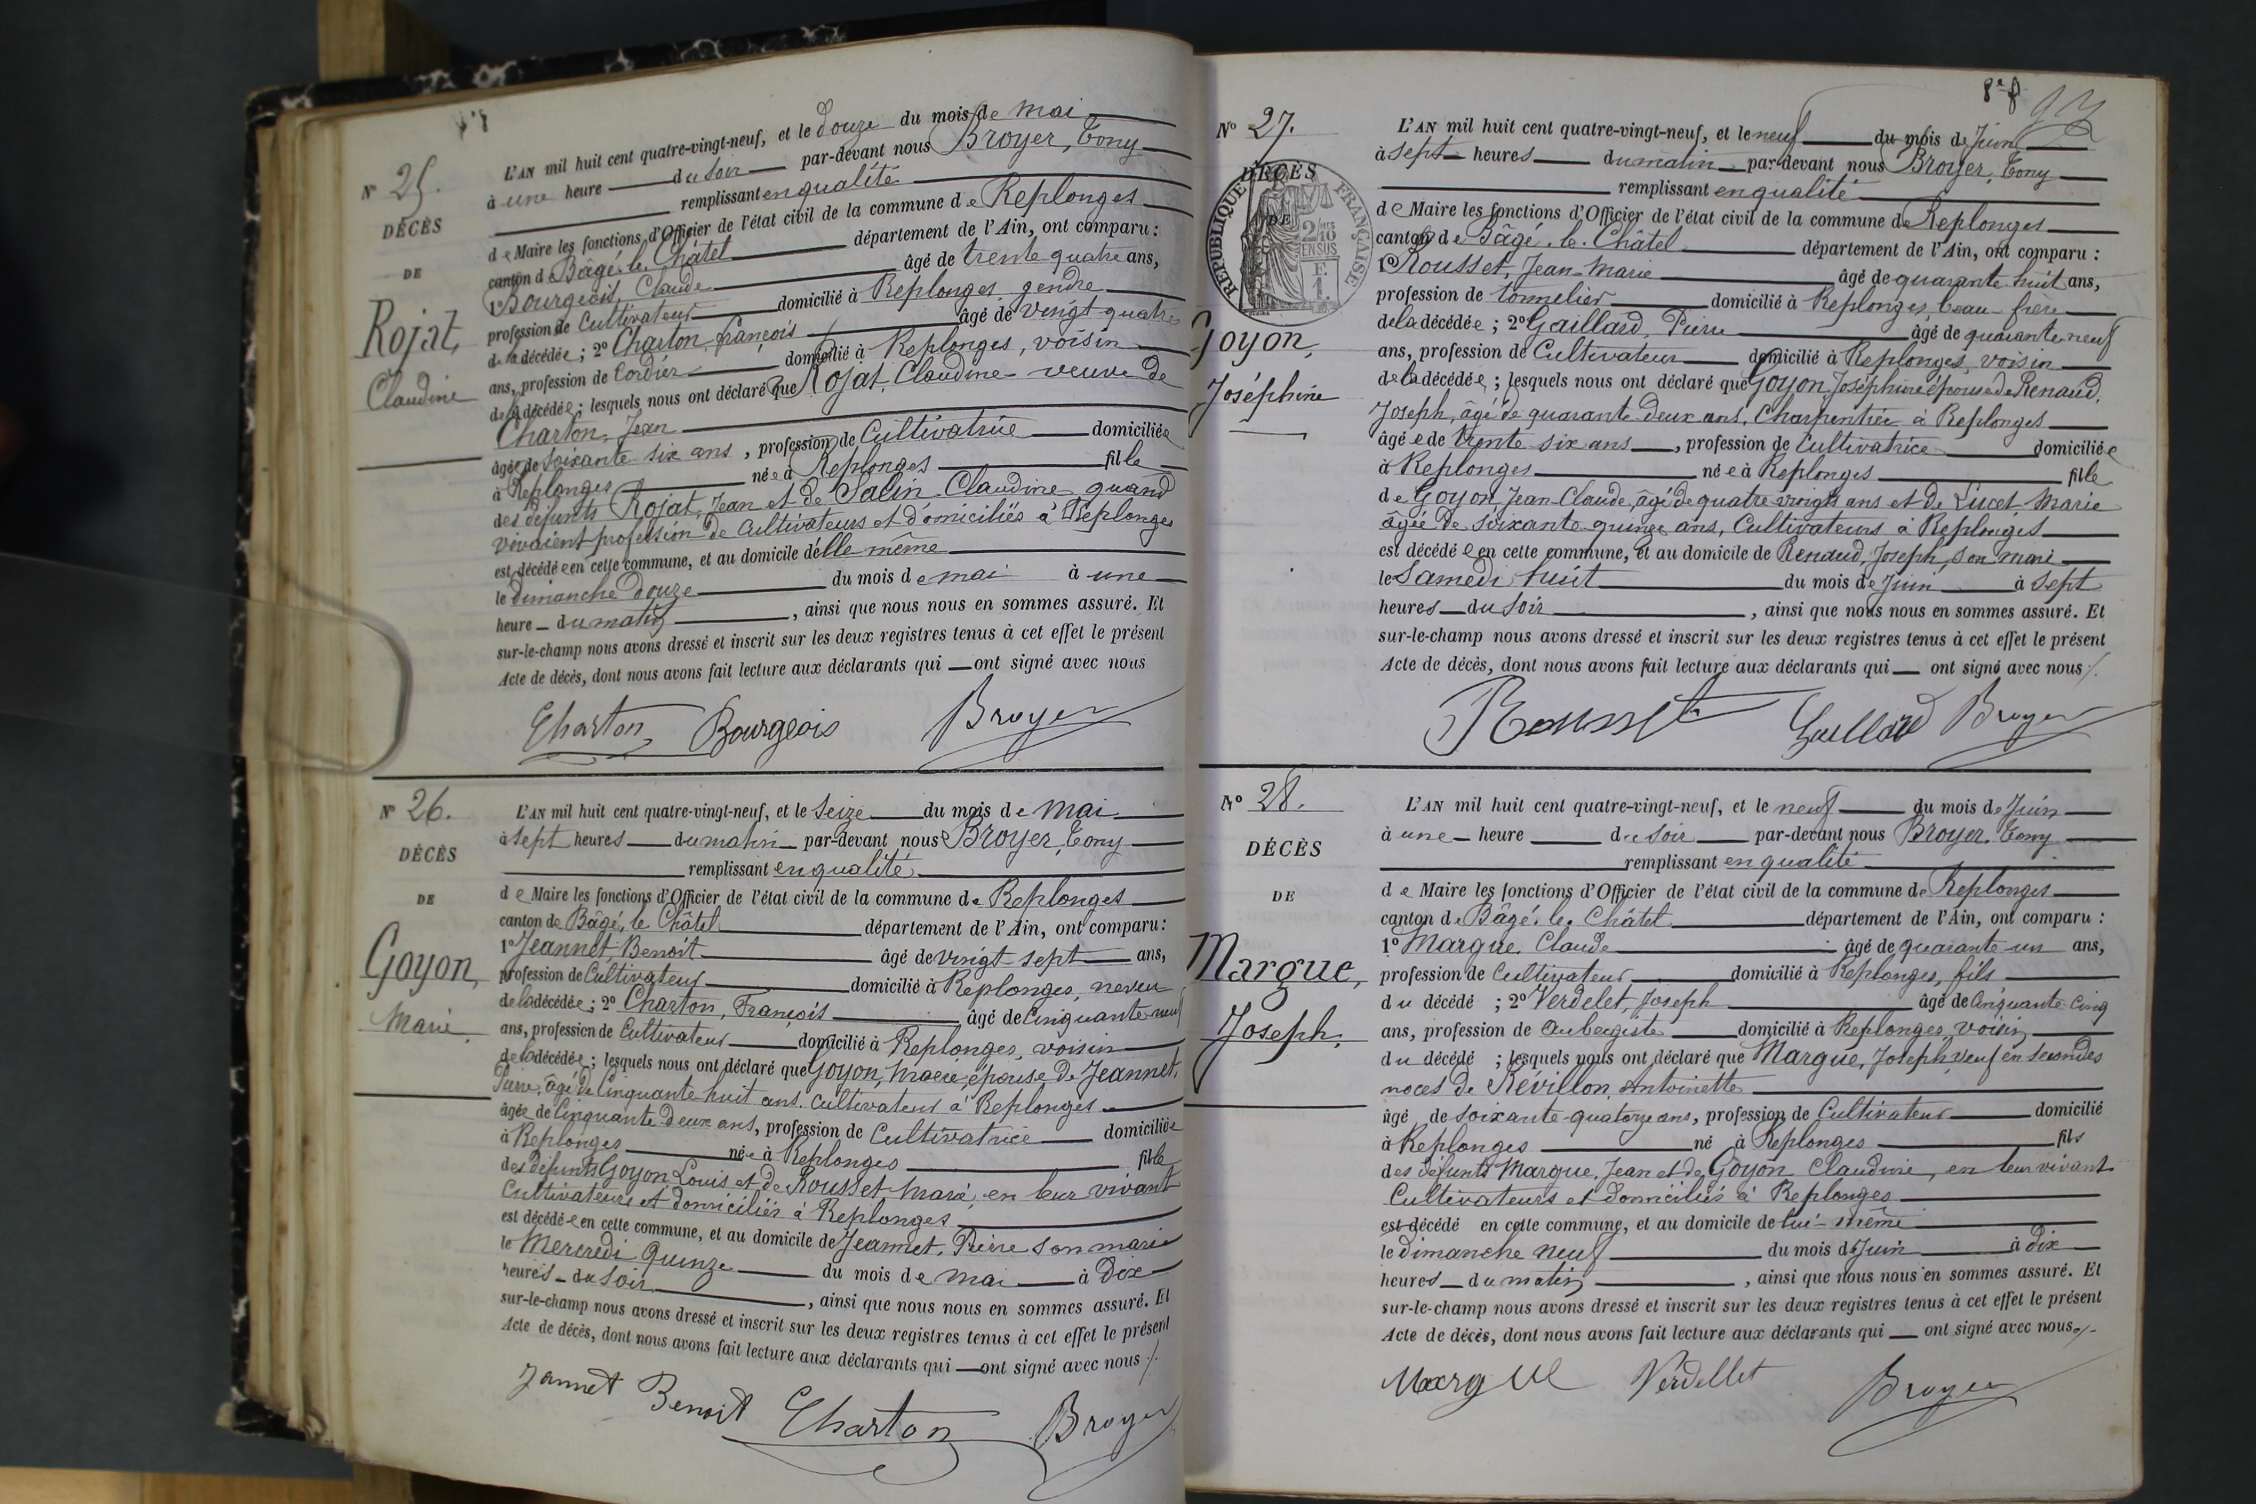 N° 25.
DÉCÈS
DE
Rojat,
Claudine
L'AN mil huit cent quatre-vingt-neuf, et le douze du mois de mai
à une heure du soir par-devant nous Broyer, Tony
remplissant en qualité
de Maire les fonctions d'Officier de l'état civil de la commune de Replonges
canton de Bâgé-le-Châtel département de l'Ain, ont comparu :
1° Bourgeois, Claude âgé de trente quatre ans,
profession de Cultivateur domicilié à Replonges, gendre
de la décédée ; 2° Charton, françois âgé de vingt-quatre
ans, profession de Cordier domicilié à Replonges, voisin
de la décédée ; lesquels nous ont déclaré que Rojat, Claudine veuve de
Charton, Jean
âgée de soixante six ans, profession de Cultivatrice domiciliée
à Replonges née à Replonges fille
des défunts Rojat, Jean et de Salin Claudine quand
vivaient profession de Cultivateurs et domiciliés à Replonges
est décédée en cette commune, et au domicile d'elle même
le dimanche douze du mois de mai à une
heure du matin, ainsi que nous nous en sommes assuré. Et
sur-le-champ nous avons dressé et inscrit sur les deux registres tenus à cet effet le présent
Acte de décès, dont nous avons fait lecture aux déclarants qui ont signé avec nous
Charton Bourgeois Broyer
N° 26.
DÉCÈS
DE
Goyon,
Marie
L'AN mil huit cent quatre-vingt-neuf, et le seize du mois de mai
à sept heures du matin par-devant nous Broyer, Tony
remplissant en qualité
de Maire les fonctions d'Officier de l'état civil de la commune de Replonges
canton de Bâgé, le Châtel département de l'Ain, ont comparu :
1° Jeannet, Benoit âgé de vingt-sept ans,
profession de Cultivateur domicilié à Replonges, neveu
de la décédée ; 2° Charton, François âgé de Cinquante neuf
ans, profession de Cultivateur domicilié à Replonges, voisin
de la décédée ; lesquels nous ont déclaré que Goyon, Marie, épouse de Jeannet,
Pierre, âgé de Cinquante huit ans. Cultivateur à Replonges
âgée de Cinquante deux ans, profession de Cultivatrice domiciliée
à Replonges née à Replonges fille
des défunts Goyon Louis et de Rousset Marie, en leur vivant
Cultivateurs et domiciliés à Replonges
est décédée en cette commune, et au domicile de Jeannet, Pierre son mari
le Mercredi Quinze du mois de mai à dix
heures du soir, ainsi que nous nous en sommes assuré. Et
sur-le-champ nous avons dressé et inscrit sur les deux registres tenus à cet effet le présent
Acte de décès, dont nous avons fait lecture aux déclarants qui ont signé avec nous
Jannet Benoit Charton Broyer
8e f
N° 27.
DÉCÈS
DE
RÉPUBLIQUE FRANÇAISE
2/10 EN SUS
F.
1.
Goyon,
Joséphine
L'AN mil huit cent quatre-vingt-neuf, et le neuf du mois de Juin
à sept heures du matin par-devant nous Broyer, Tony
remplissant en qualité
de Maire les fonctions d'Officier de l'état civil de la commune de Replonges
canton de Bâgé-le-Châtel département de l'Ain, ont comparu :
1° Rousset, Jean-Marie âgé de quarante huit ans,
profession de tonnelier domicilié à Replonges, beau-frère
de la décédée ; 2° Gaillard, Pierre âgé de quarante neuf
ans, profession de Cultivateur domicilié à Replonges, voisin
de la décédée ; lesquels nous ont déclaré que Goyon, Joséphine épouse de Renaud,
Joseph, âgé de quarante deux ans, Charpentier à Replonges
âgée de trente six ans, profession de Cultivatrice domiciliée
à Replonges née à Replonges fille
de Goyon, Jean-Claude, âgé de quatre vingts ans et de Lucet Marie
âgée de soixante quinze ans, Cultivateurs à Replonges
est décédée en cette commune, et au domicile de Renaud, Joseph, son mari
le Samedi huit du mois de Juin à sept
heures du soir, ainsi que nous nous en sommes assuré. Et
sur-le-champ nous avons dressé et inscrit sur les deux registres tenus à cet effet le présent
Acte de décès, dont nous avons fait lecture aux déclarants qui ont signé avec nous
Rousset Gaillard Broyer
N° 28.
DÉCÈS
DE
Margue,
Joseph.
L'AN mil huit cent quatre-vingt-neuf, et le neuf du mois de Juin
à une heure du soir par-devant nous Broyer, Tony
remplissant en qualité
de Maire les fonctions d'Officier de l'état civil de la commune de Replonges
canton de Bâgé-le-Châtel département de l'Ain, ont comparu :
1° Margue, Claude âgé de quarante-un ans,
profession de Cultivateur domicilié à Replonges, fils
du décédé ; 2° Verdelet, Joseph âgé de Cinquante-cinq
ans, profession de Aubergiste domicilié à Replonges, voisin
du décédé ; lesquels nous ont déclaré que Margue, Joseph, veuf en secondes
noces de Révillon, Antoinette
âgé de soixante-quatorze ans, profession de Cultivateur domicilié
à Replonges né à Replonges fils
des défunts Margue, Jean et de Goyon Claudine, en leur vivant
Cultivateurs et domiciliés à Replonges
est décédé en cette commune, et au domicile de lui-même
le dimanche neuf du mois de Juin à dix
heures du matin, ainsi que nous nous en sommes assuré. Et
sur-le-champ nous avons dressé et inscrit sur les deux registres tenus à cet effet le présent
Acte de décès, dont nous avons fait lecture aux déclarants qui ont signé avec nous
Margue Verdellet Broyer